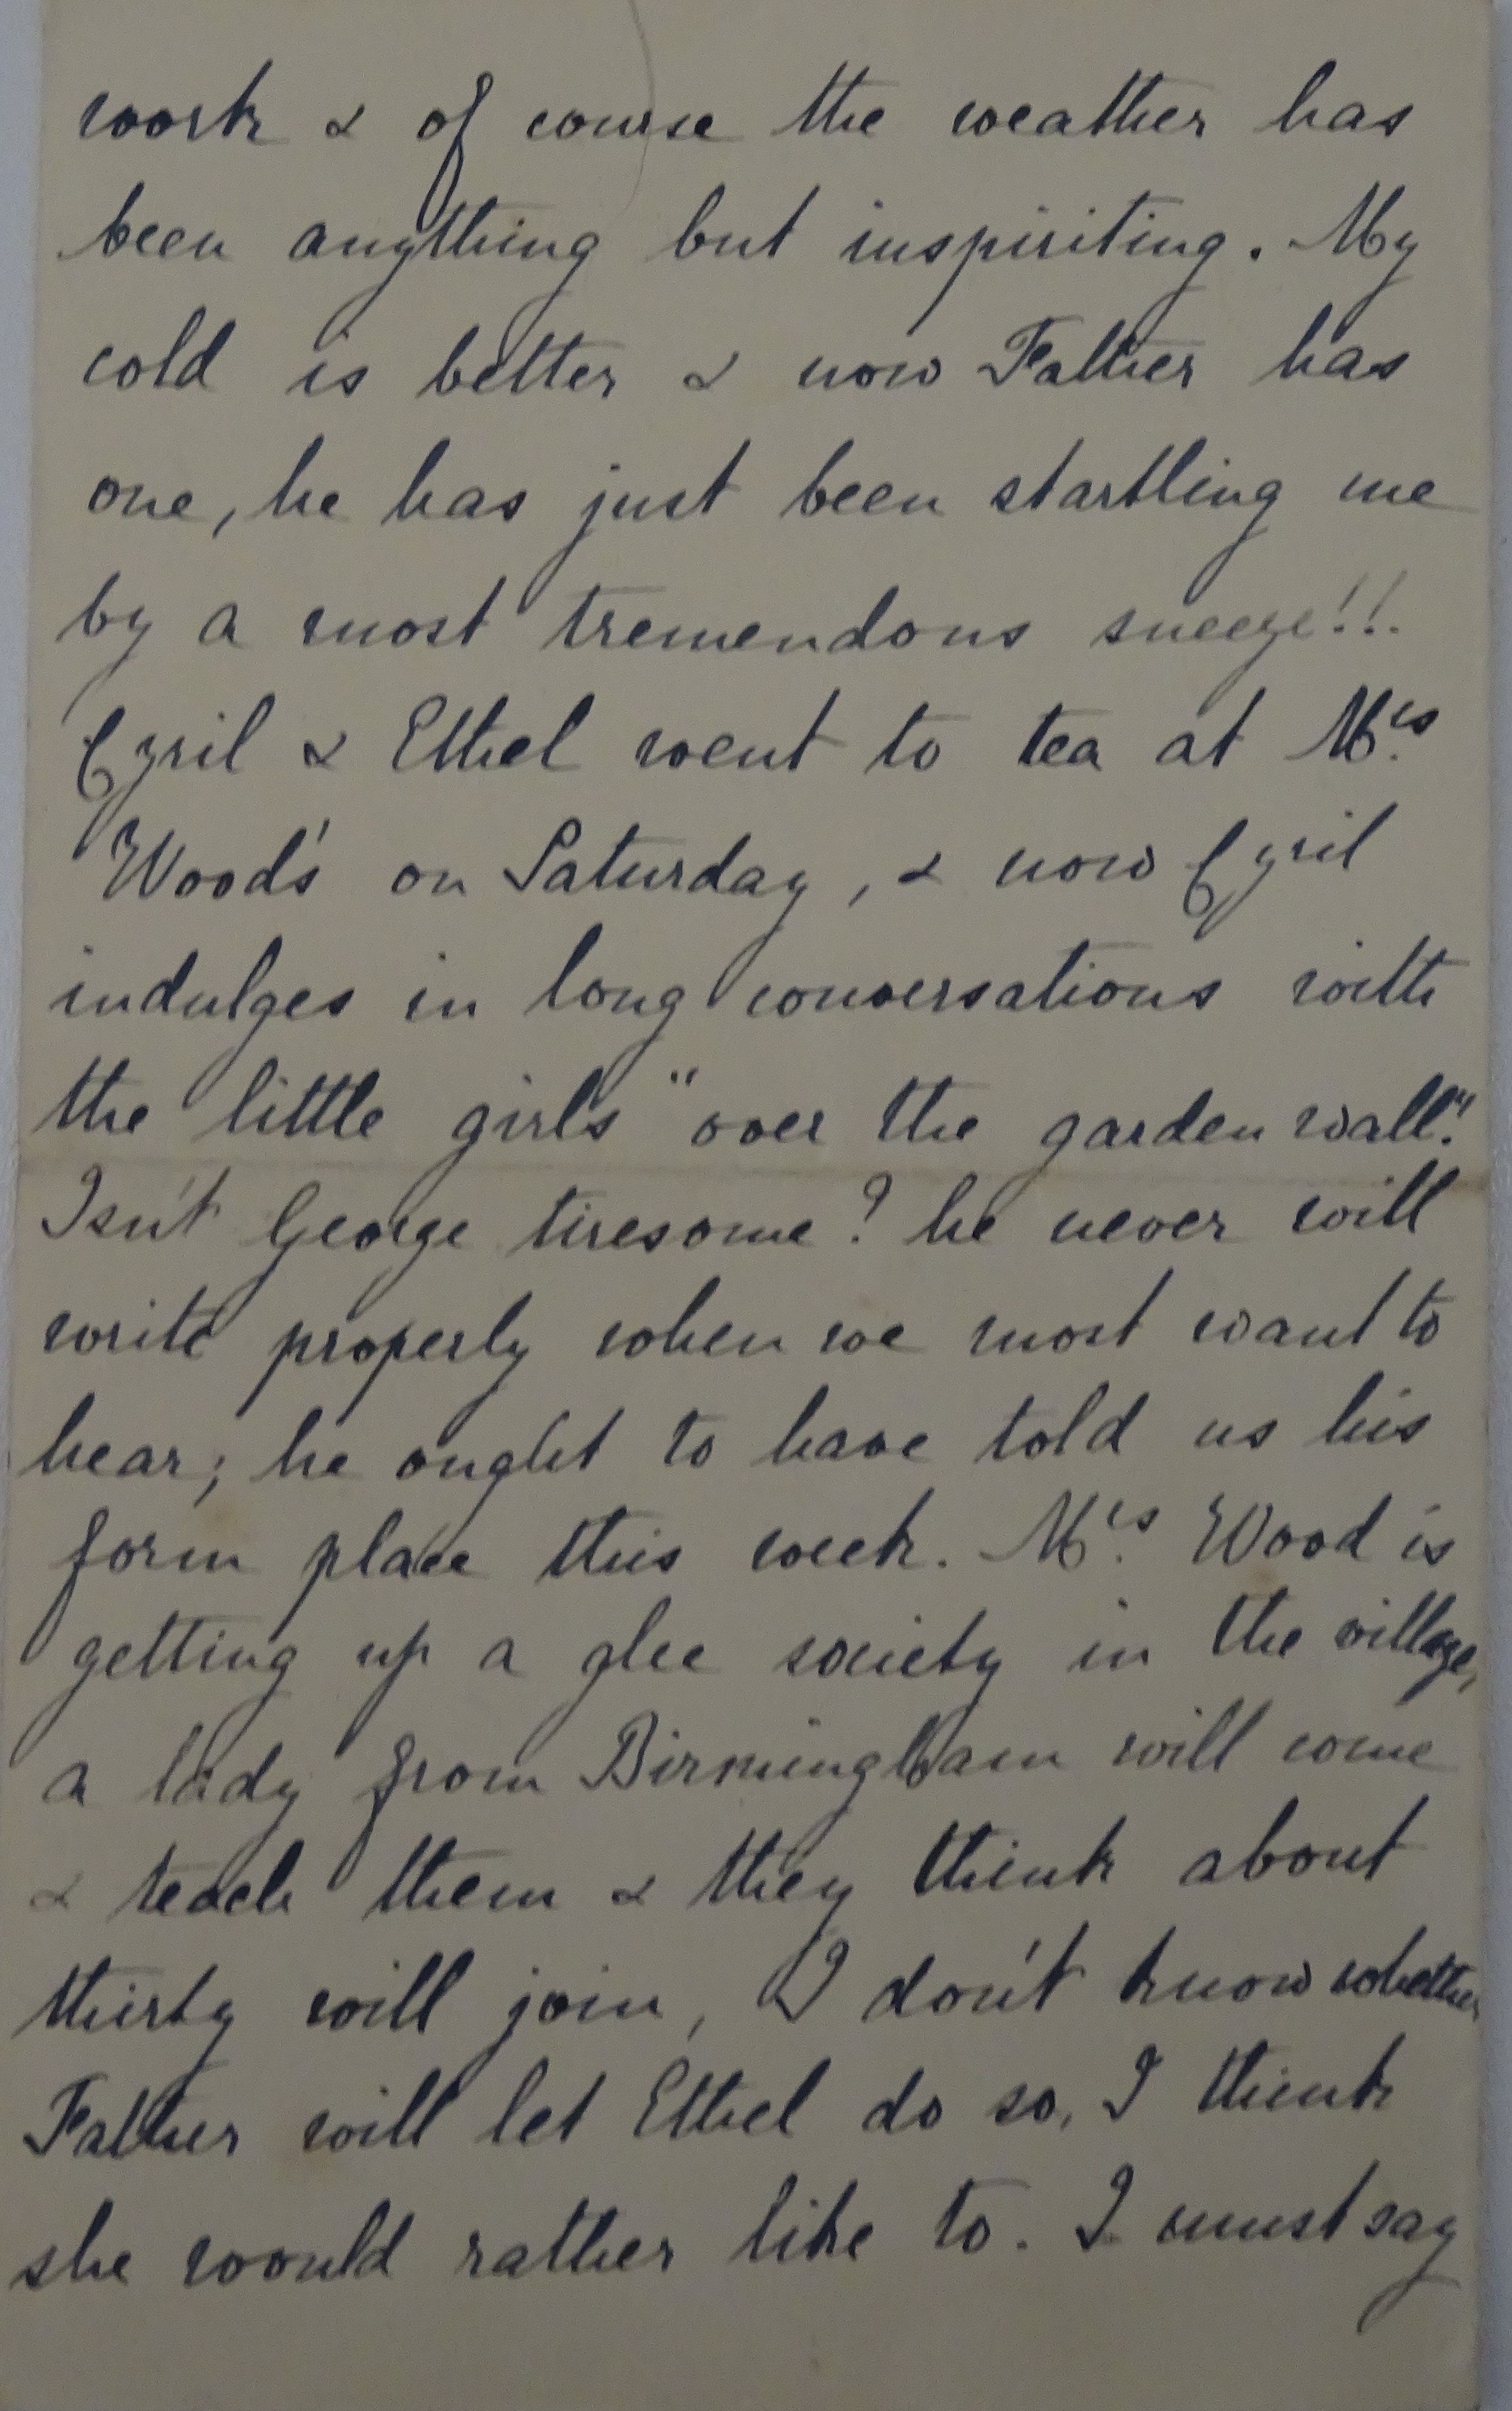 work & of course the weather has
been anything but inspiriting. My
cold is better & now Father has
one, he has just been startling me
by a most tremendous sneeze!!.
Cyril & Ethel went to tea at Mrs.
Wood's on Saturday, & now Cyril
indulges in long conversations with
the little girls "over the garden wall."
Isn't George tiresome? he never will
write properly when we most want to
hear; he ought to have told us his
form place this week. Mrs. Wood is
getting up a glee society in the village,
a lady from Birmingham will come
& teach them & they think about
thirty will join, I don't know whether
Father will let Ethel do so, I think
she would rather like to. I must say